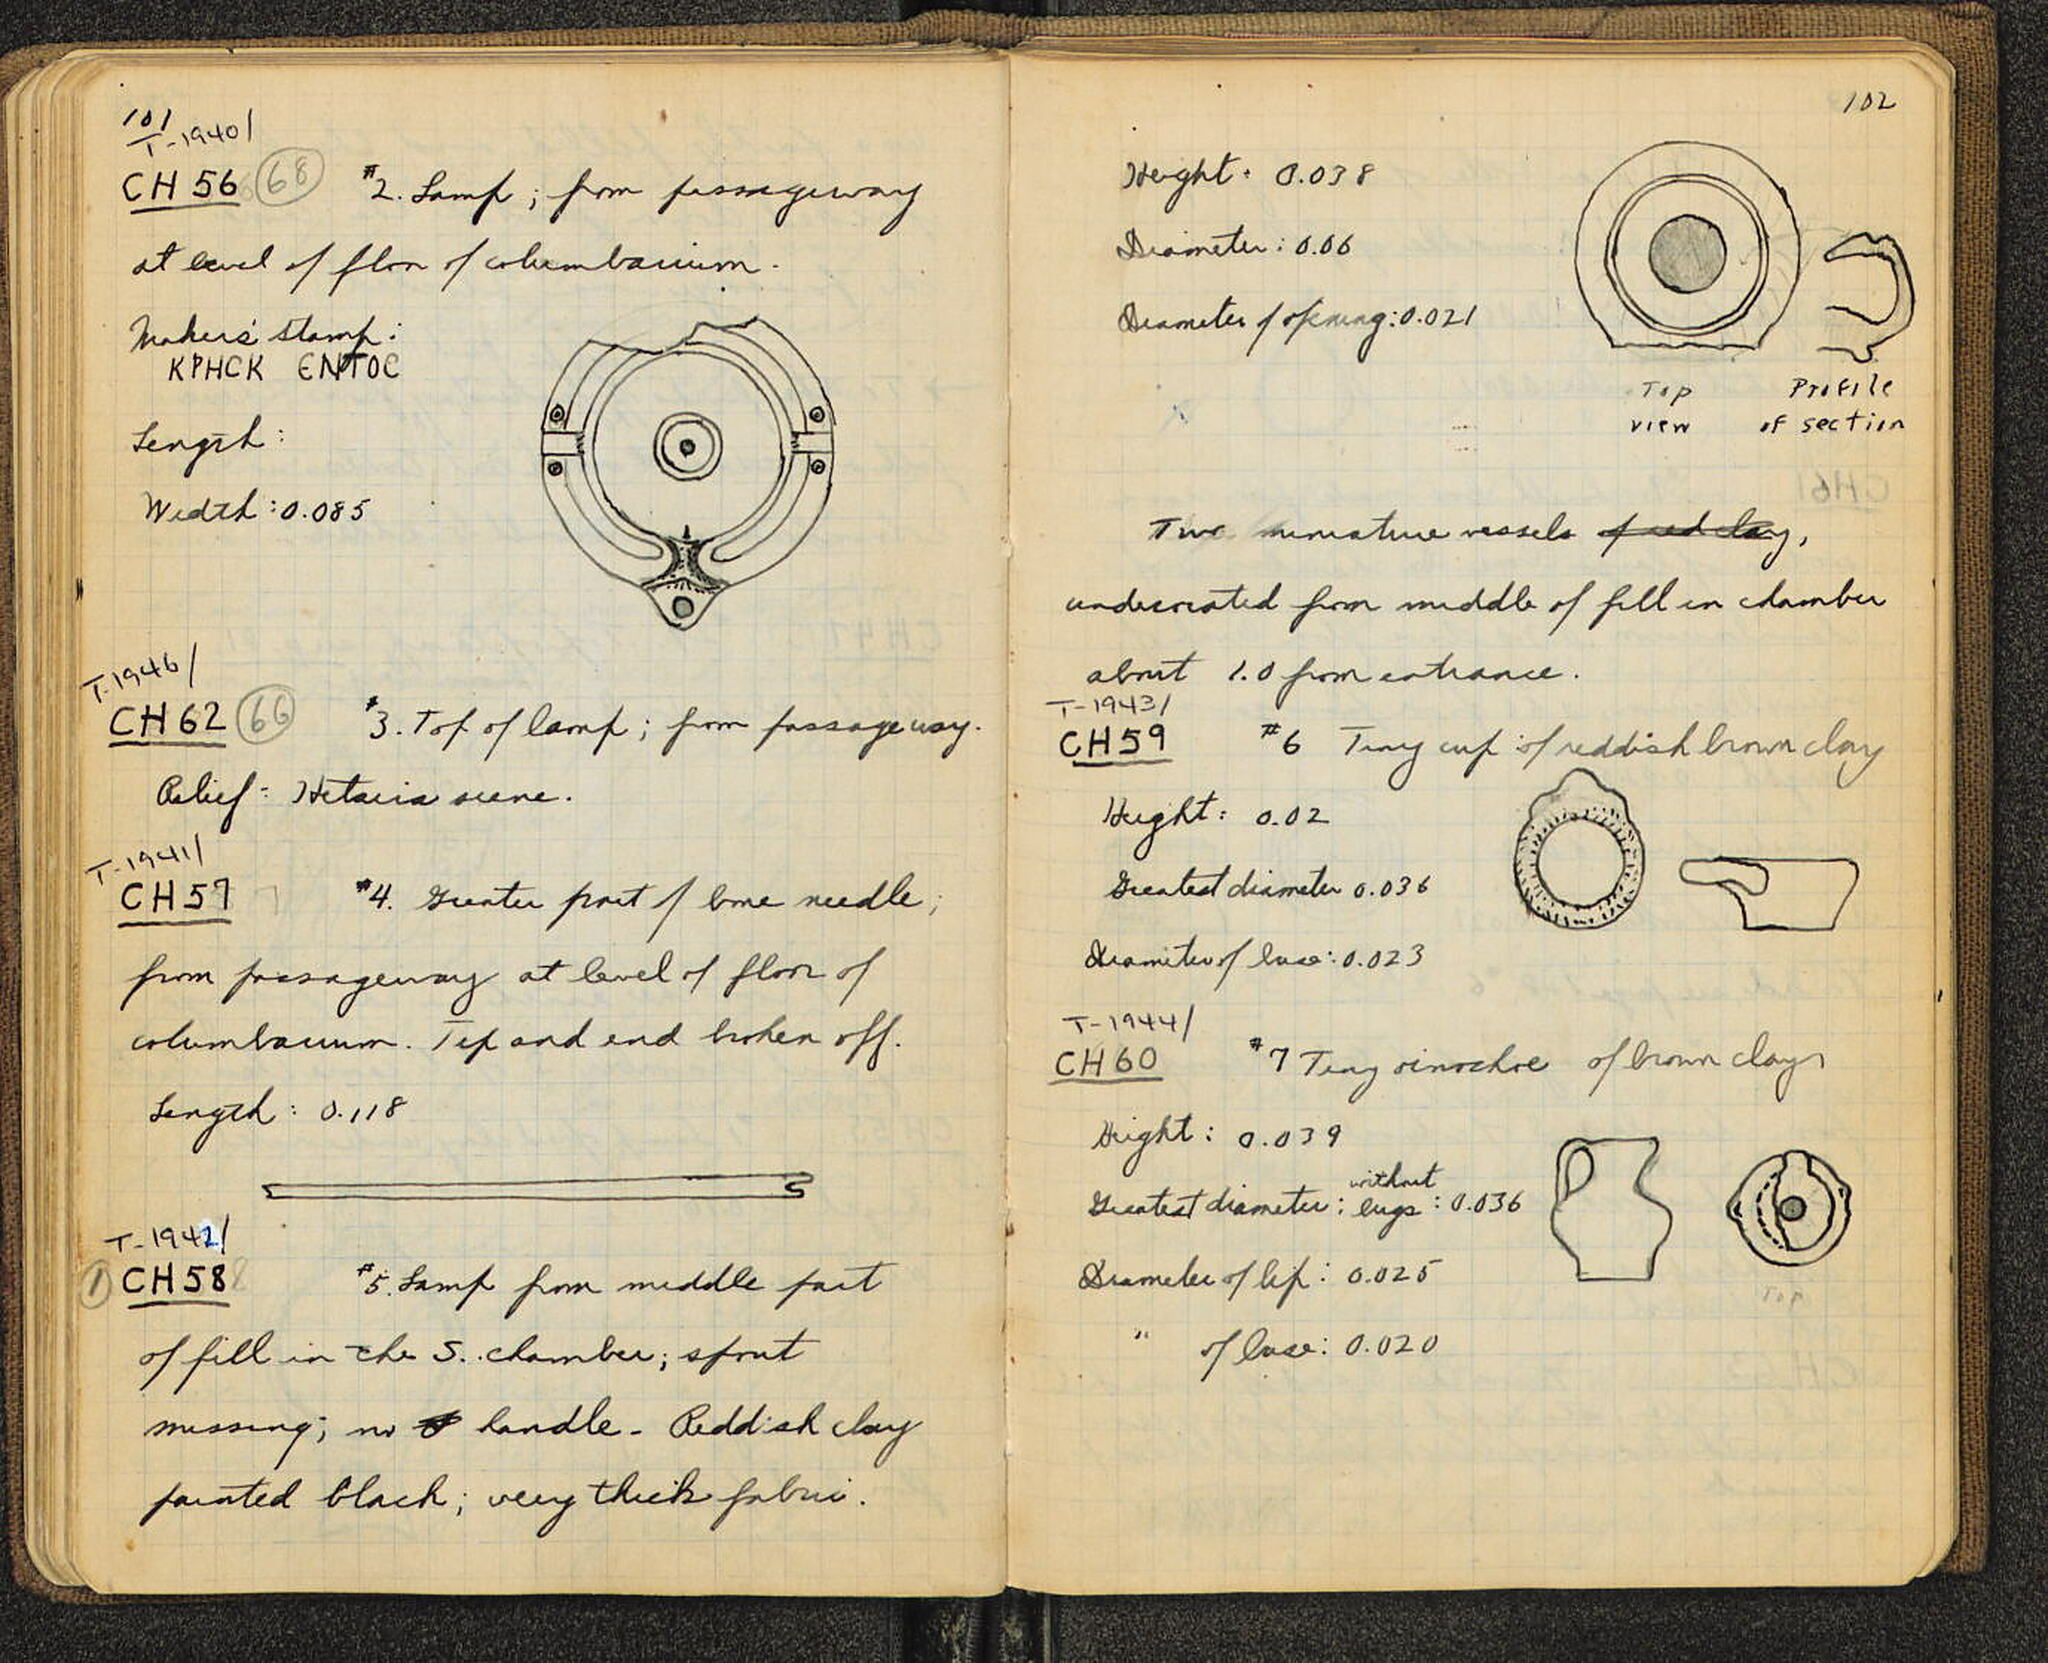 101
T-1940/
CH 56 (68) #2. Lamp; from passageway
at level of floor of columbarium.
Makers' stamp:
KPHCK ЄNTOC
Length:
Width: 0.085
T-1946/
CH 62 (66) #3. Top of lamp; from passageway.
Relief: Hetaira scene.
T-1941/
CH 57 #4. Greater part of bone needle;
from passageway at level of floor of
columbarium. Tip and end broken off.
Length: 0.118
T-1942/
(1) CH 58 #5. Lamp from middle part
of fill in the S. chamber; spout
missing; no handle. Reddish clay
painted black; very thick fabric.
102
Height: 0.038
Diameter: 0.06
Diameter of opening: 0.021
Top
view
Profile
of section
Two miniature vessels of red clay,
undecorated from middle of fill in chamber
about 1.0 from entrance.
T-1943/
CH 59 #6 Tiny cup of reddish brown clay
Height: 0.02
Greatest diameter 0.036
Diameter of base: 0.023
T-1944/
CH 60 #7 Tiny oinochoe of brown clay
Height: 0.039
Greatest diameter: without lugs: 0.036
Diameter of lip: 0.025
" of base: 0.020
Top